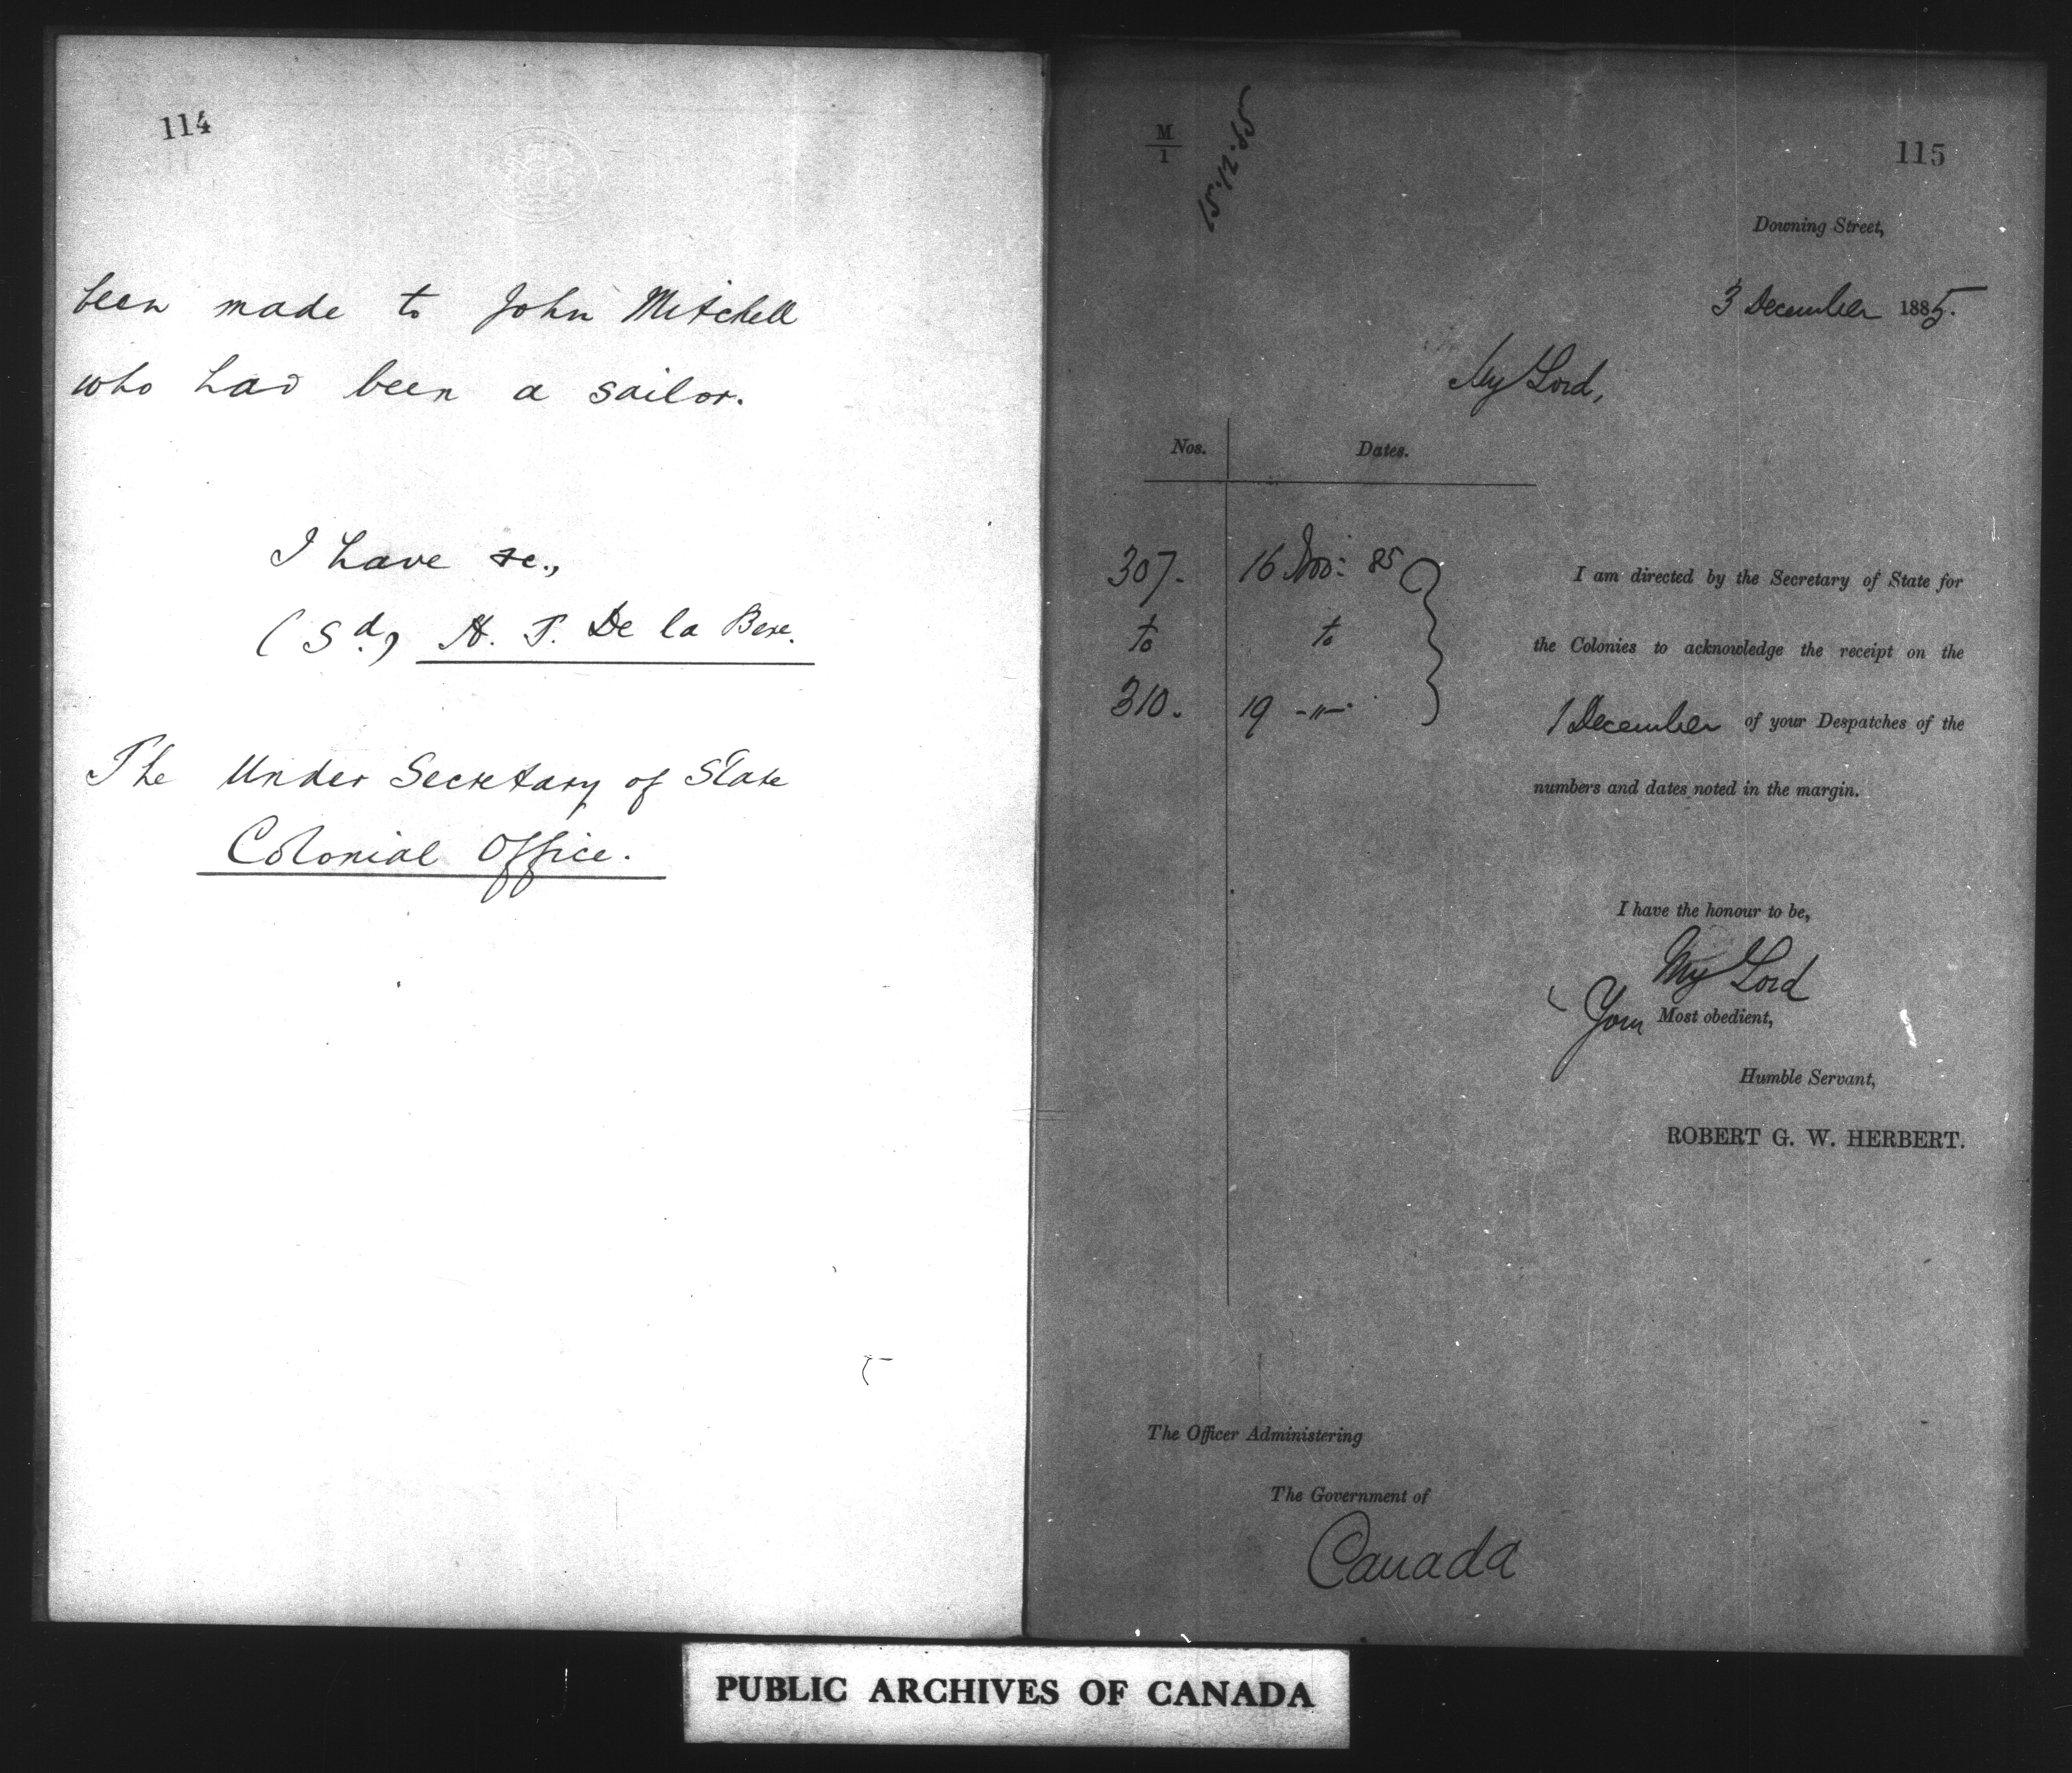 114
been made to John Mitchell
who had been a sailor.
I have &c.,
(Sd.) H. T. De la Bere.
The Under Secretary of State
Colonial Office.
M
1
15.12.85
115
Downing Street,
3 December 1885.
My Lord,
Nos. Dates.
307. 16 Nov: 85
to to
310. 19 -"-
I am directed by the Secretary of State for
the Colonies to acknowledge the receipt on the
1 December of your Despatches of the
numbers and dates noted in the margin.
I have the honour to be,
My Lord
Your Most obedient,
Humble Servant,
ROBERT G. W. HERBERT.
The Officer Administering
The Government of
Canada
PUBLIC ARCHIVES OF CANADA